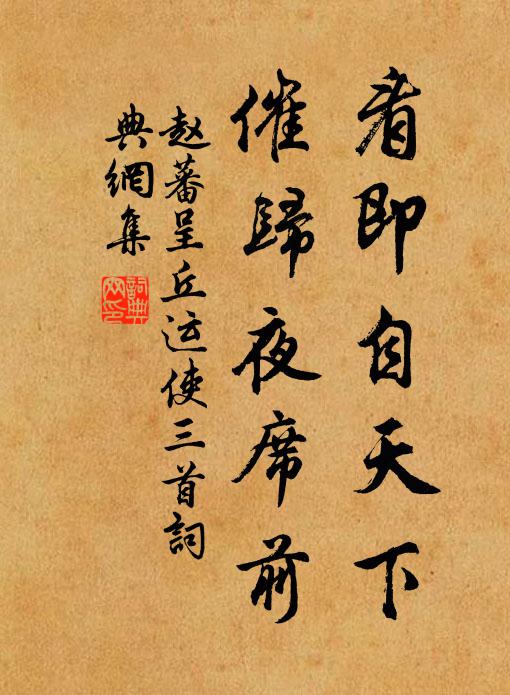 看即自天下
催歸夜席前
赵蕃呈丘运使三首詞
典網集
詞典
网印